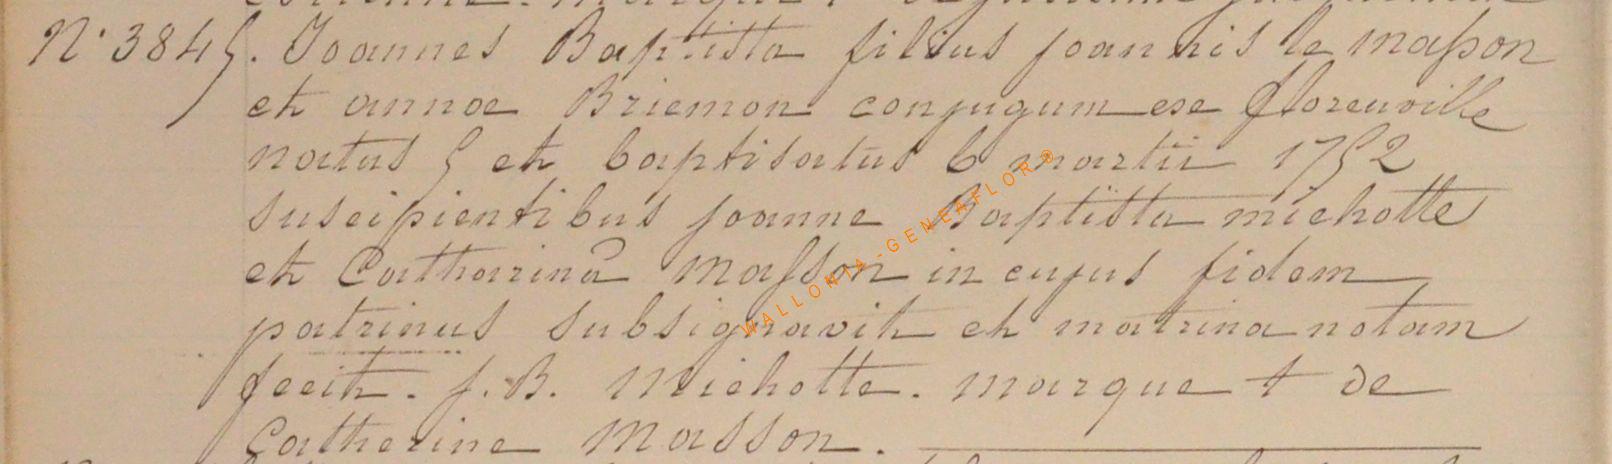 N° 3845. Joannes Baptista filius joannis le masson
et annoe Briemon conjugum ex florenville
natus 5 et baptisatus 6 martii 1752
suscipientibus joanne Baptista michotte
et Catharina Masson in cujus fidem
patrinus subsignavit et matrina notam
fecit. j. B. Michotte. marque t de
Catherine Masson.
WALLONIA-GENEAFLOR®